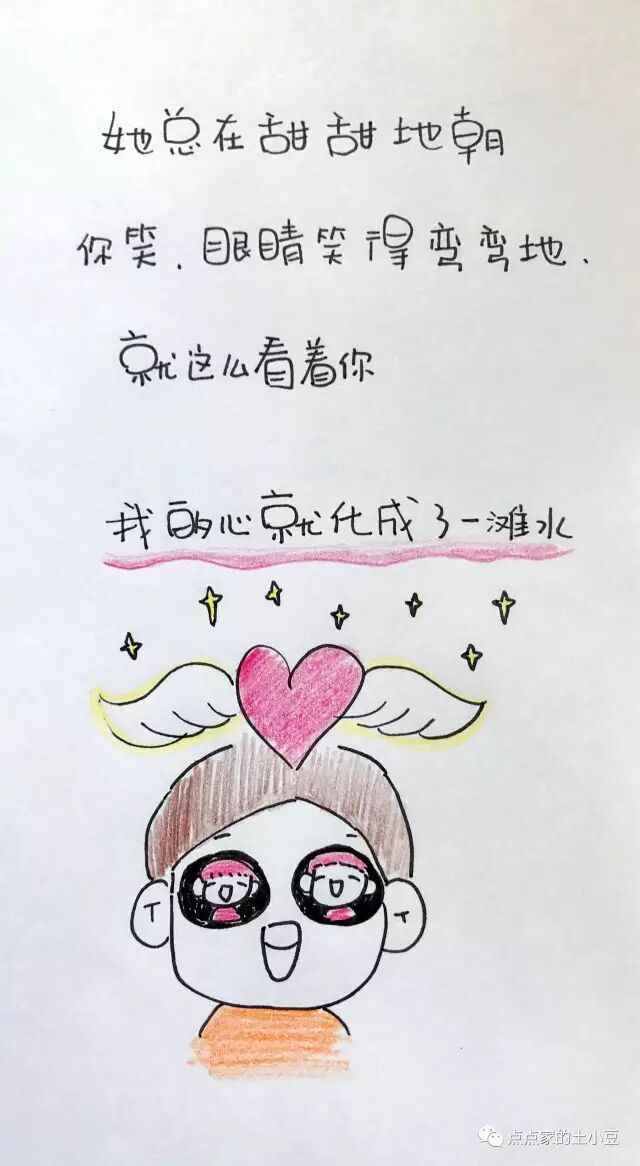 她总在甜甜地朝
你笑、眼睛笑得弯弯地、
就这么看着你
我的心就化成了一滩水
点点家的土小豆